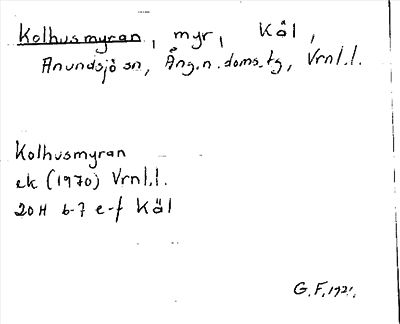 Kolhusmyran, myr, Käl,
Anundsjö sn, Ång.n.doms.tg, Vrnl.l.
Kolhusmyran
ek (1970) Vrnl.l.
20H 6-7 e-f Käl
G.F. 1921.